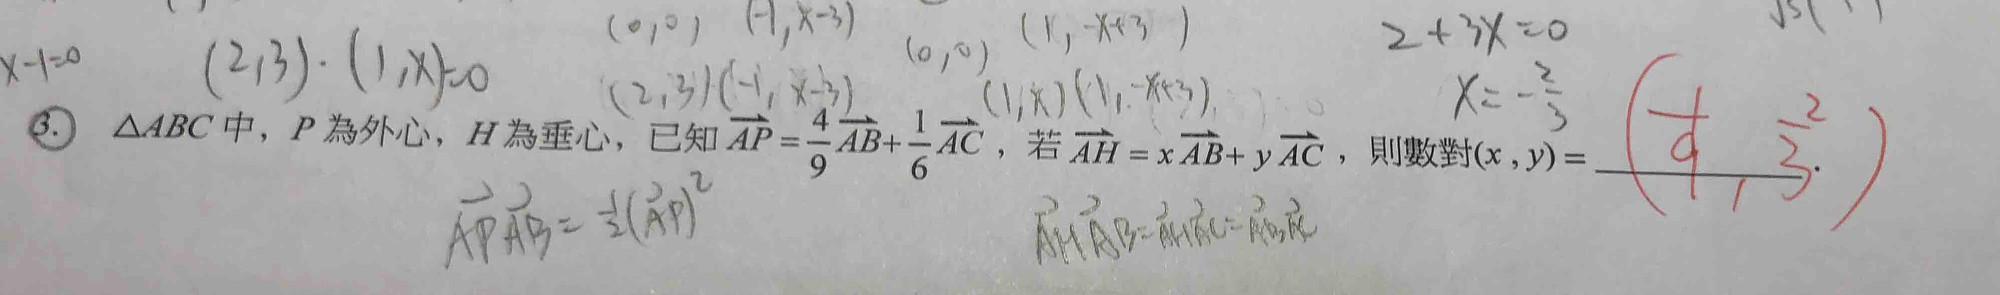 (0,0) (-1, x-3) (1, -x+3) 2+3x=0
x-1=0 (2,3)·(1,x)=0 (0,0)
(2,3)(-1, x-3) (1,x)(1,-x+3) x=-2/3
3. △ABC 中，P 為外心，H 為垂心，已知 AP→ = 4/9 AB→ + 1/6 AC→，若 AH→ = x AB→ + y AC→，則數對(x , y) = (1/9, 2/3).
AP→ AB→ = 1/2 (AP→)² AH→ AB→ = AH→ AC→ = AB→ AC→